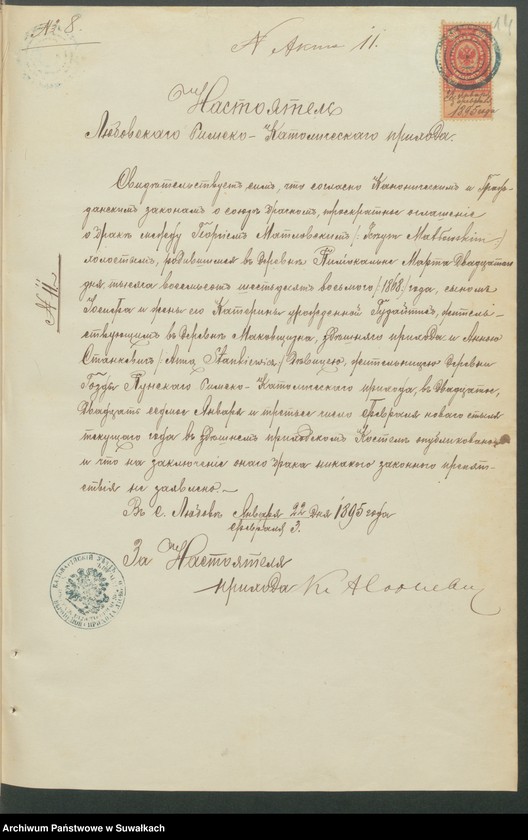 № 8.
14
N Акта 11.
1895 года
Настоятель
Любовскаго Римско-Католическаго прихода.
Свидѣтельствуетъ симъ, что согласно Каноническимъ и Граж-
данскимъ законамъ о союзѣ брачномъ, троекратное оглашеніе
о бракѣ между Георгіемъ Матловскимъ /: Matłowskim :/
холостымъ, родившимся въ деревнѣ Марта Двадцатаго
дня тысяча восемьсотъ шестьдесятъ восьмого /1868/ года, сыномъ
Іосифа и жены его Катерины урожденной Гудайтисъ, житель-
ствующимъ въ деревнѣ Маковщизна, здѣшняго прихода и Анною
Станкевичъ /Anna Stankiewicz/ дѣвицею, жительницею деревни
Пунскаго Римско-Католическаго прихода, въ двадцатое,
Двадцать седьмое Января и третье число Февраля новаго стиля
текущаго года въ здѣшнемъ приходскомъ Костелѣ опубликовано
и что на заключеніе онаго брака никакого законнаго препят-
ствія не заявлено.
N 11.
Въ с. Любовъ Января 22 дня 1895 года
Февраля 3.
За Настоятеля
прихода Кс.